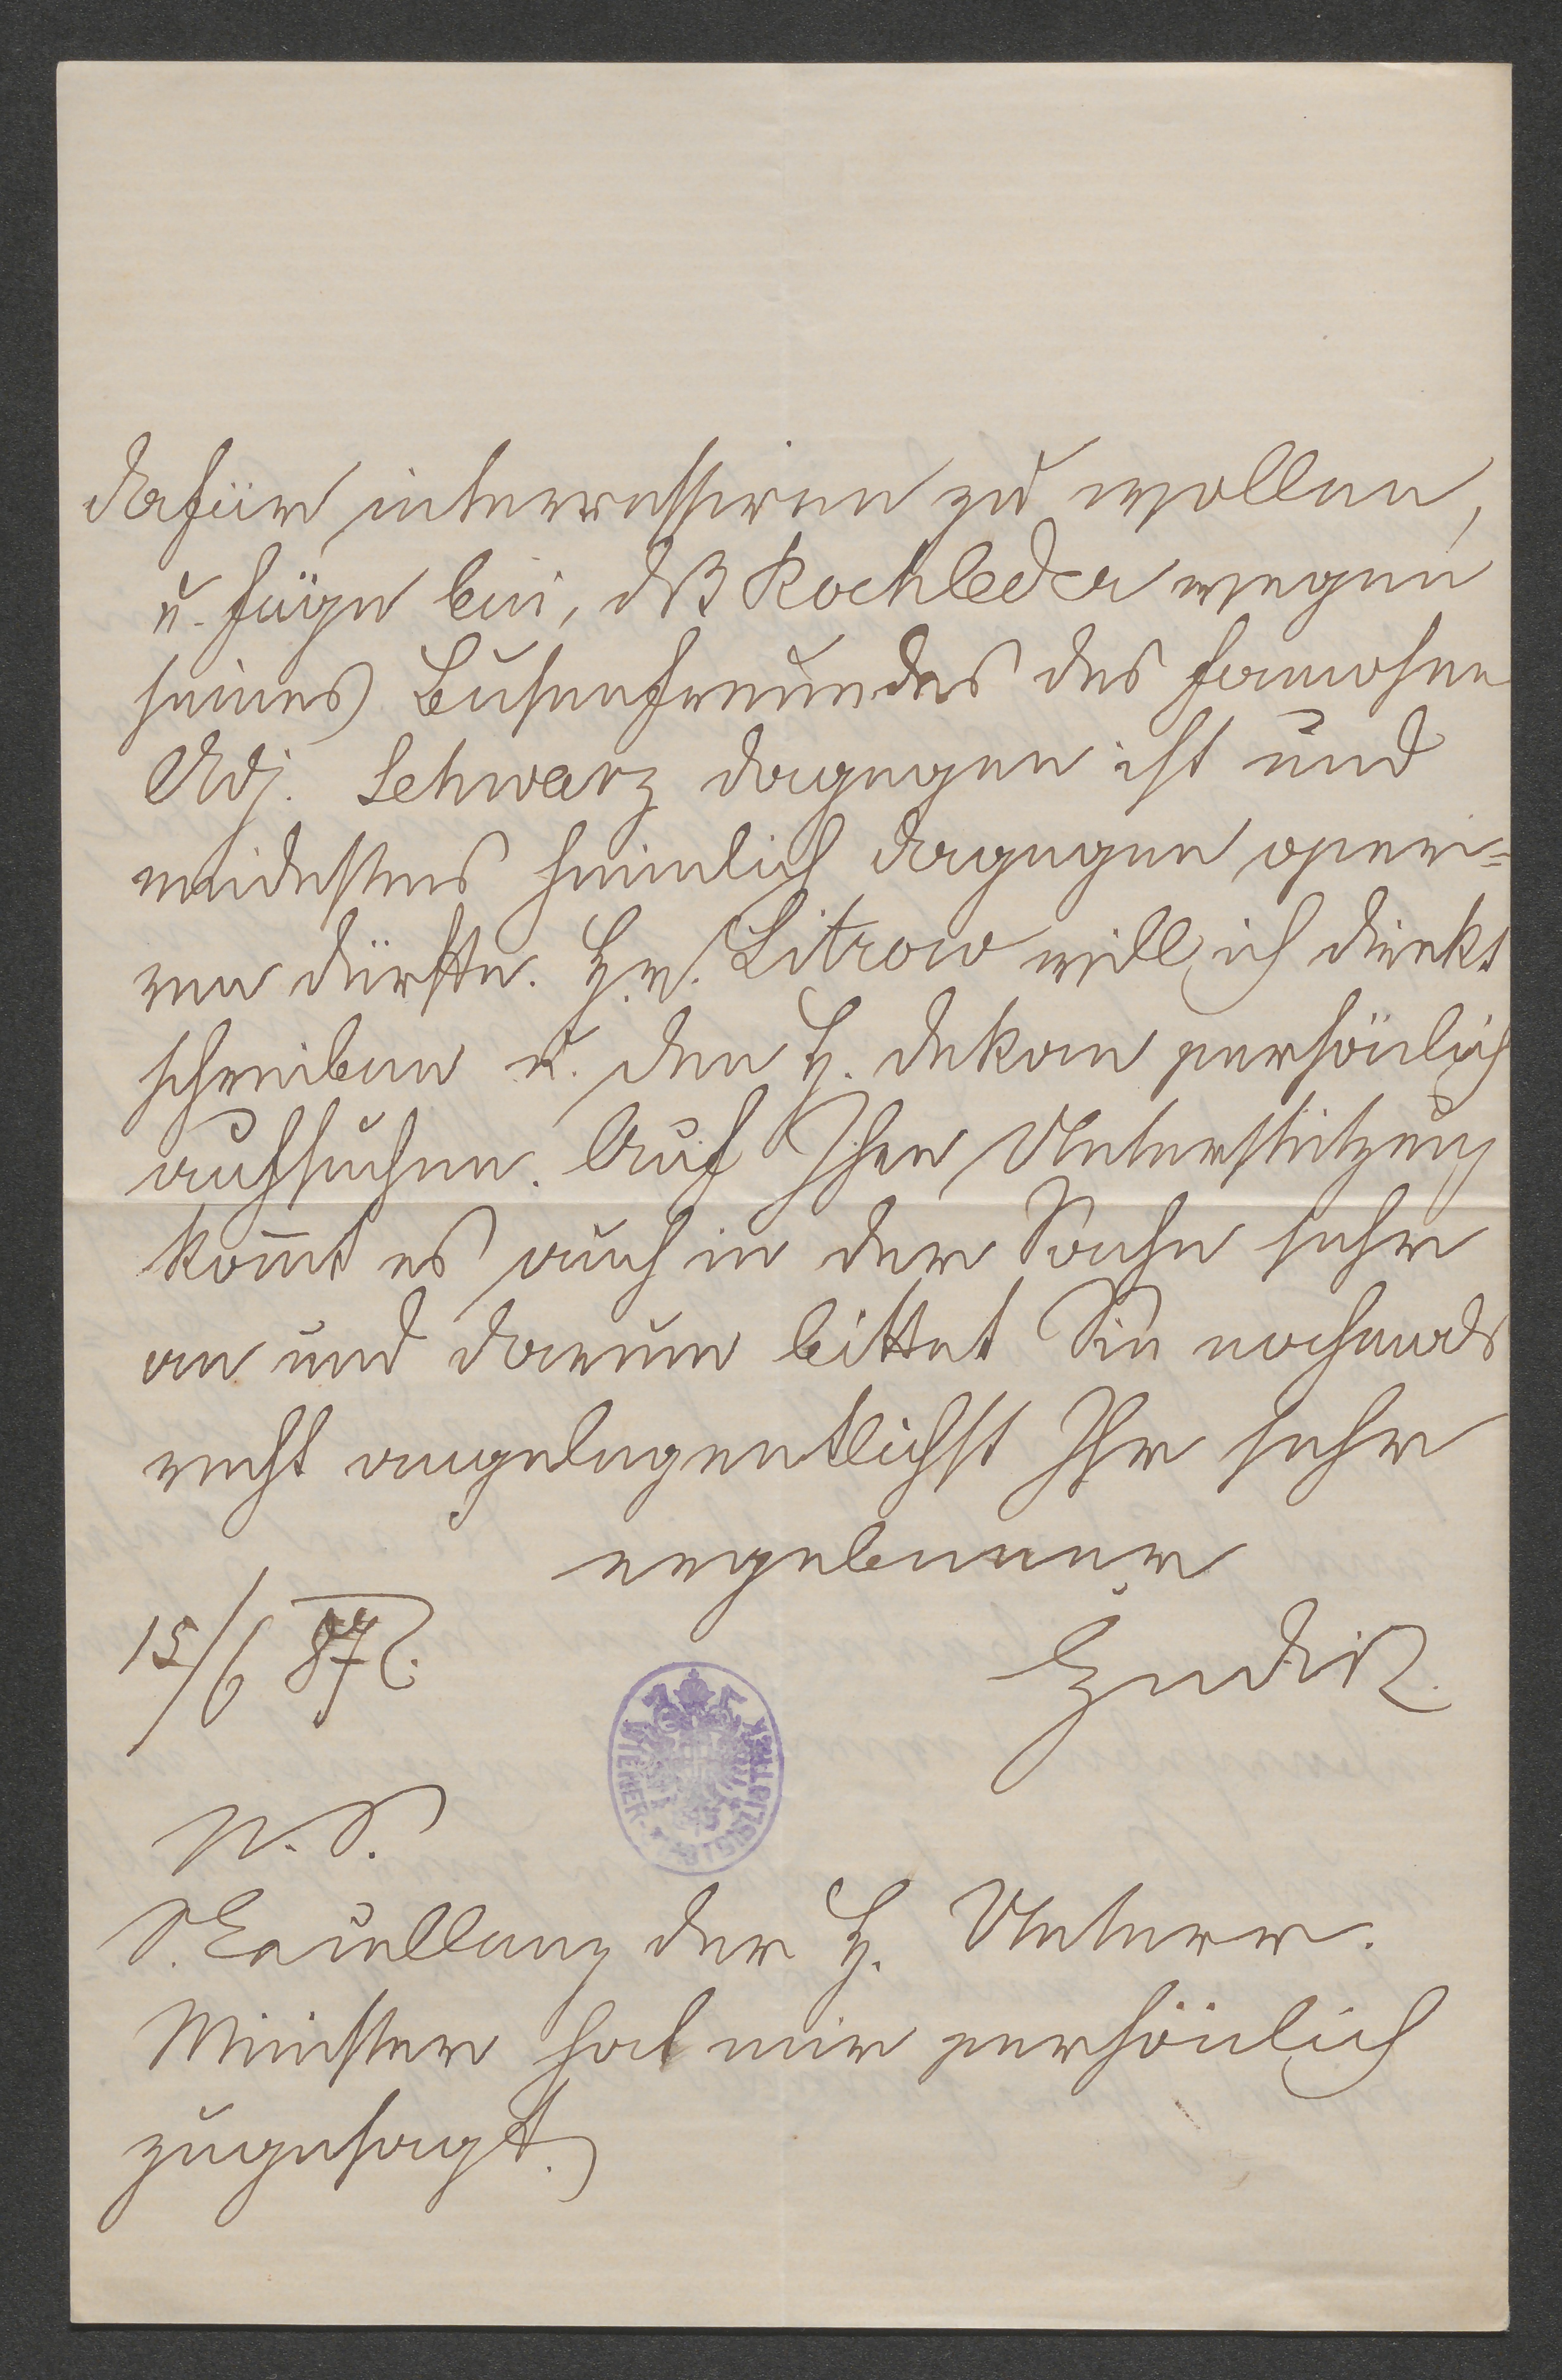 dafür interressiren zu wollen,
u. füge bei, dß Rochleder wegen
seines Busenfreundes des famosen
Adj. Schwarz dagegen ist und
mindestens heimlich dagegen operi=
ren dürfte. H. v. Litrow will ich direkt
schreiben u. den H. Dekan persönlich
aufsuchen. Auf Ihre Unterstützung
kom̄t es auch in der Sache sehr
an und darum bittet Sie nochmals
recht angelegentlichst Ihr sehr
ergebener
15/6 87
N. S.
S. Excellenz der H. Unterr.
Minister hat mir persönlich
zugesagt.